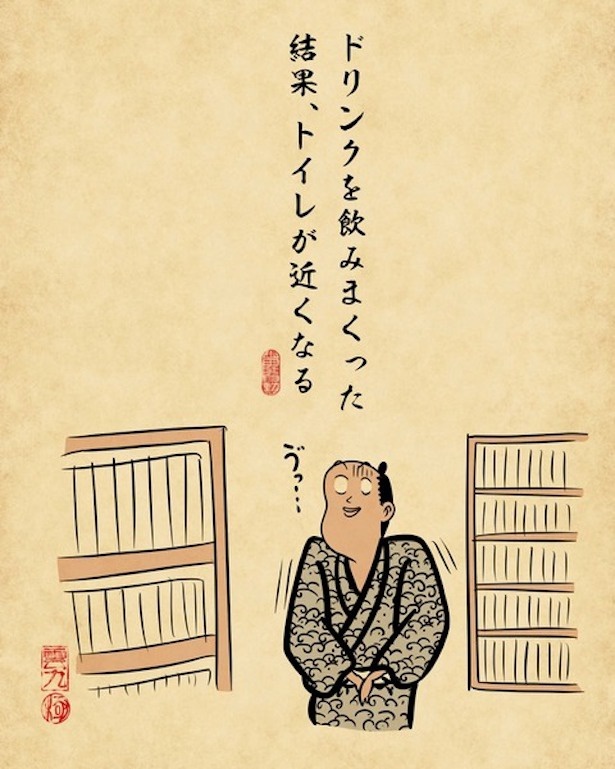 ドリンクを飲みまくった
結果、トイレが近くなる
ゔっ…